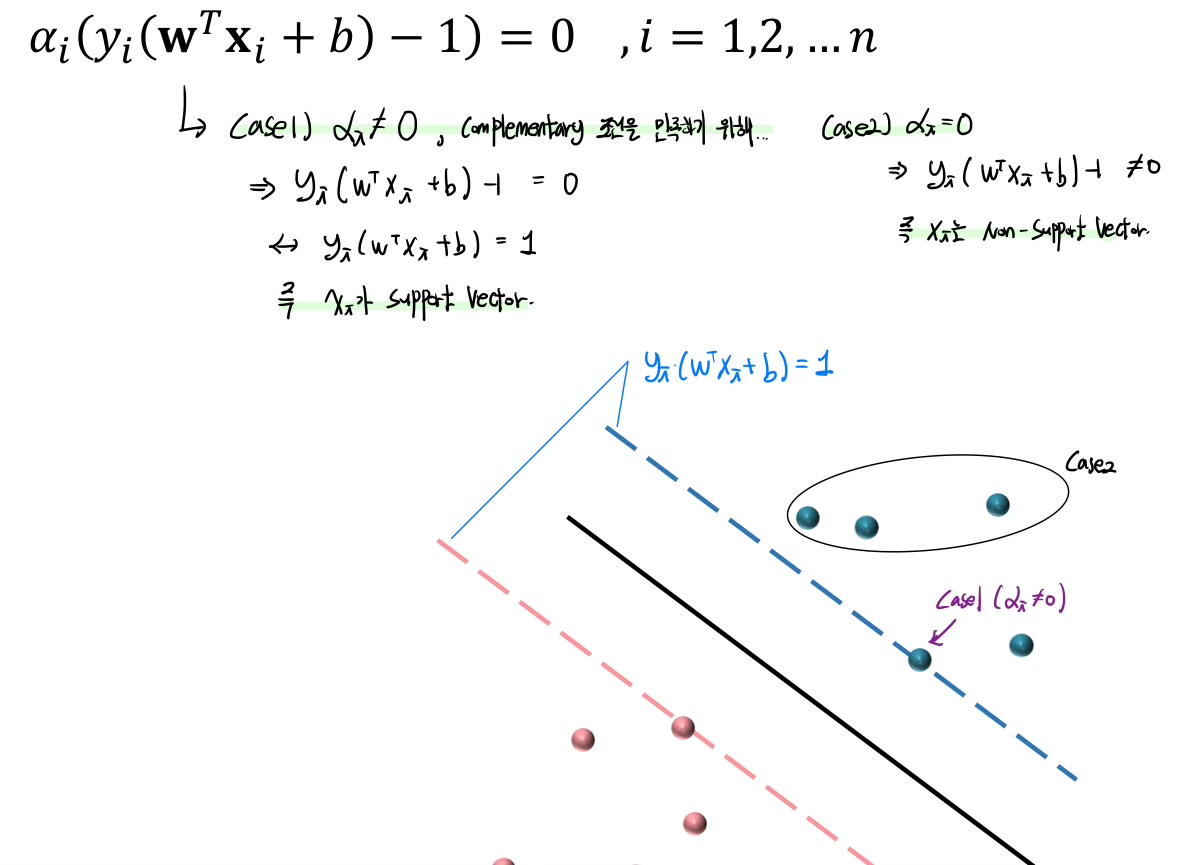 αᵢ(yᵢ(𝐰ᵀ𝐱ᵢ + b) − 1) = 0 , i = 1,2, … n
↳ Case1) αᵢ ≠ 0 , Complementary 조건을 만족하기 위해...
⇒ yᵢ(wᵀxᵢ + b) -1 = 0
↔ yᵢ(wᵀxᵢ + b) = 1
즉 xᵢ가 support vector.
Case2) αᵢ = 0
⇒ yᵢ(wᵀxᵢ + b) -1 ≠ 0
즉 xᵢ는 Non-Support Vector.
yᵢ(wᵀxᵢ + b) = 1
Case2
Case1 (αᵢ ≠ 0)